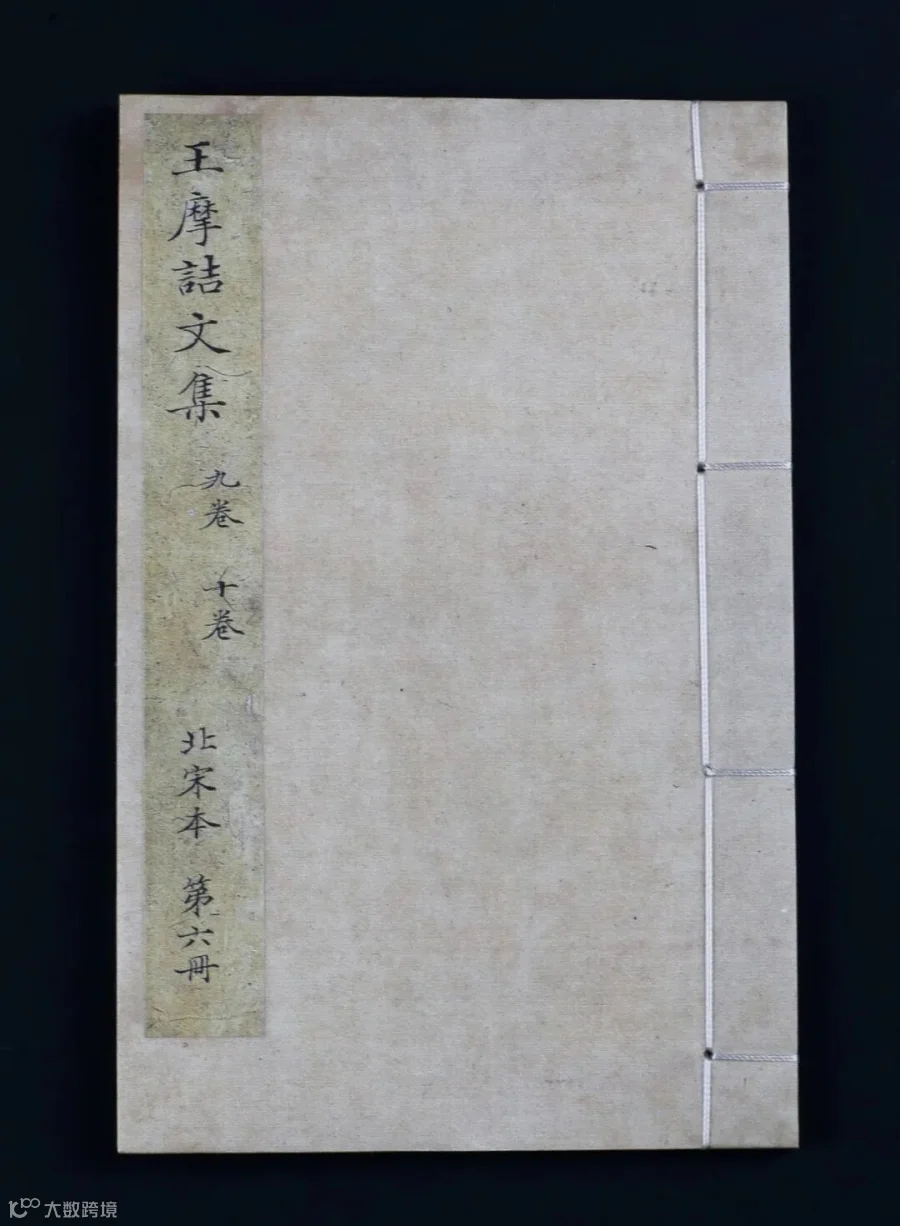 王摩詰文集
九卷 十卷
北宋本 第六冊
大数跨境